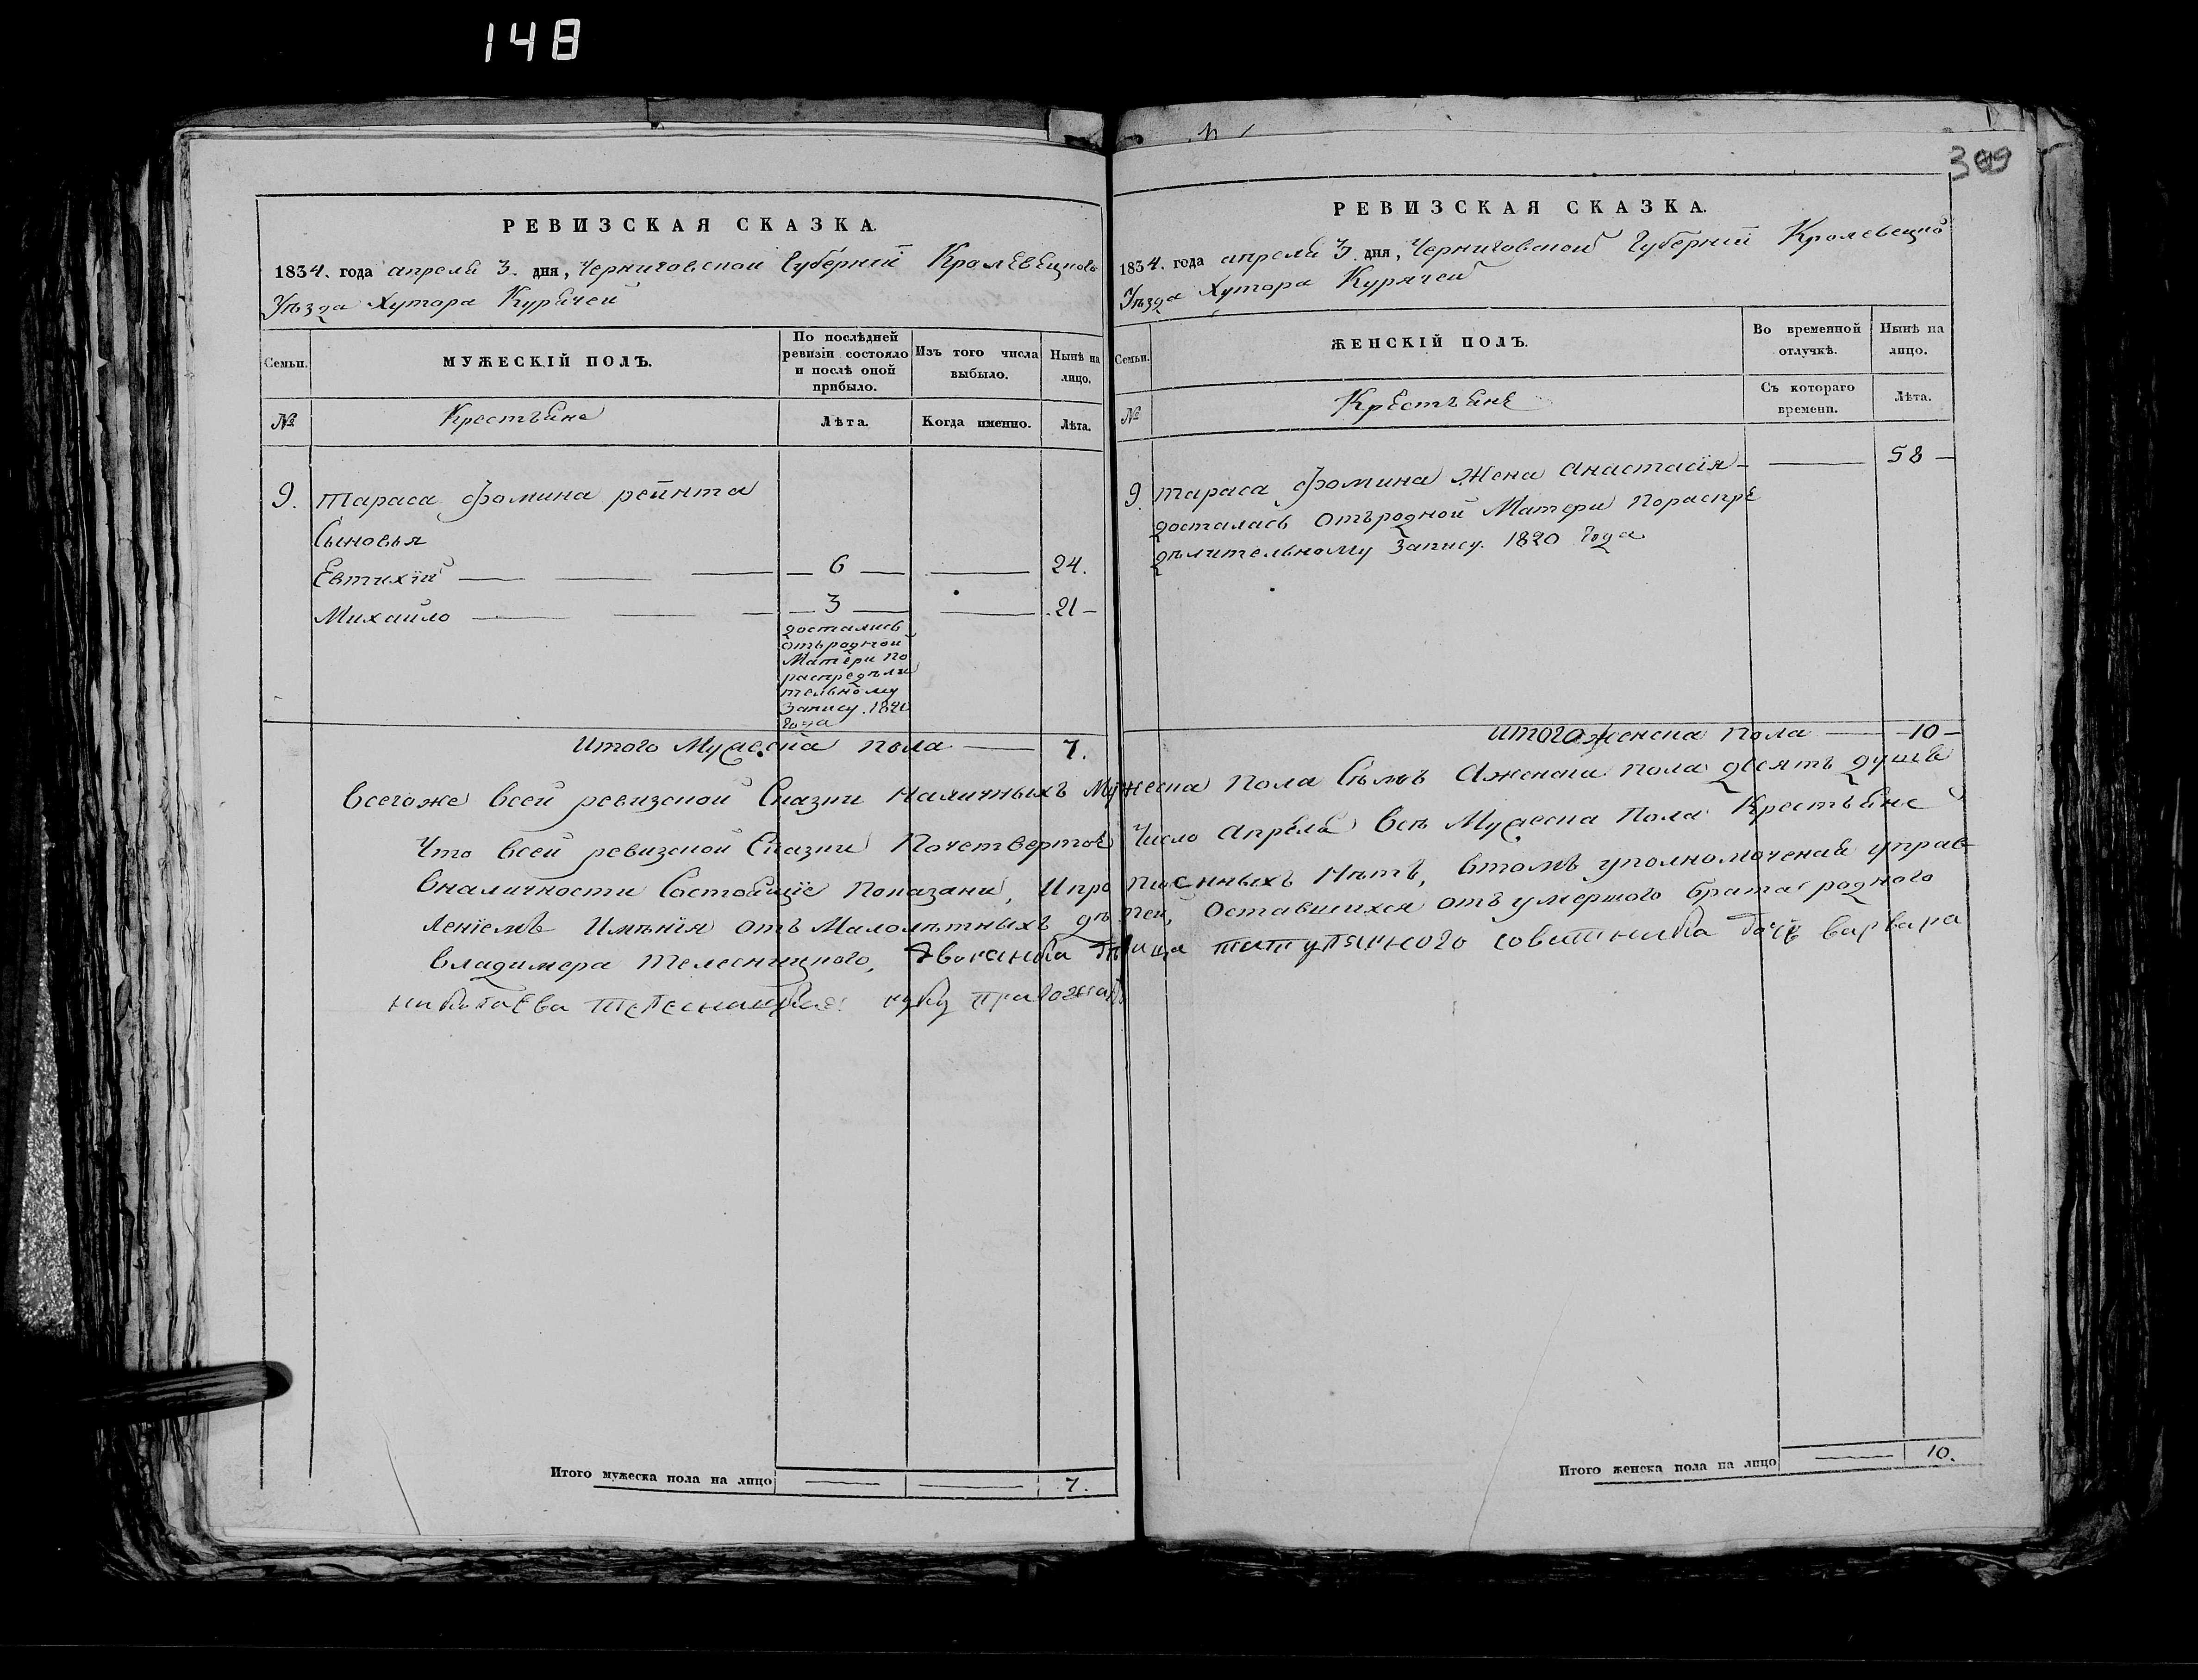 148
РЕВИЗСКАЯ СКАЗКА.
1834. года апреля 3. дня, Черниговской Губернїи Кролевецкого
Уѣзда Хутора Курячей
Семьи.
МУЖЕСКІЙ ПОЛЪ.
По послѣдней ревизіи состояло и послѣ оной прибыло.
Изъ того числа выбыло.
Нынѣ на лицо.
№
Крестьяне
Лѣта.
Когда именно.
Лѣта.
9. Тараса Фомина
Сыновья
Евтихїй 6 24.
Михайло 3 21
достались
отъ родной
Матери по
распредѣли
тельному
Запису 1820
года
Итого Мужеска пола 7.
309
РЕВИЗСКАЯ СКАЗКА.
1834. года апреля 3. дня, Черниговской Губернїи Кролевецко
Уѣзда Хутора Курячей
Семьи.
ЖЕНСКІЙ ПОЛЪ.
Во временной отлучкѣ.
Нынѣ на лицо.
№
Крестьяне
Съ котораго времени.
Лѣта.
9. Тараса Фомина Жена Анастасїя 58
досталась отъ родной Матери по распре
дѣлительному Запису 1820 года
Итого женска пола 10
Всего же всей ревизской Сказки наличныхъ Мужеска пола Сѣмъ А женска пола десять душъ
Что всей ревизской Сказки По четвертое Число Апреля Всѣ Мужеска пола Крестьяне
в наличности Состоящїе показаны, И прописныхъ Нѣтъ, в томъ уполномоченая управ
ленїемъ Имѣнїя отъ Малолѣтныхъ дѣтей, Оставшихся отъ умершого брата родного
Владимера Телесницкого, дворянка дѣвица титулярного советника дочь варвара
николаева телесницкая руку приложила
Итого мужеска пола на лицо 7.
Итого женска пола на лицо 10.